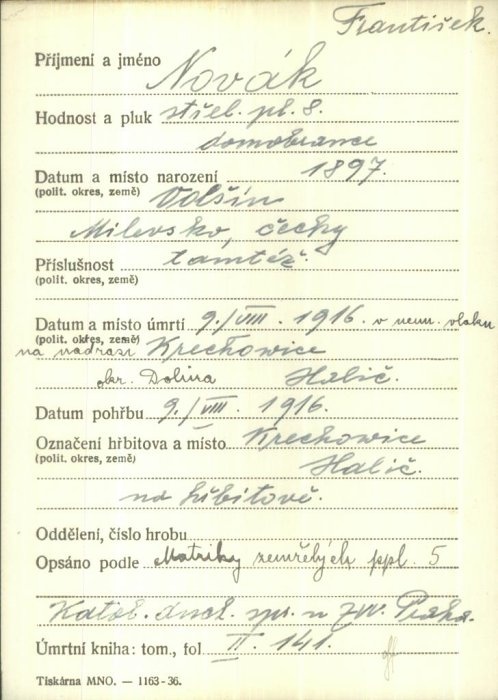 František.
Příjmení a jméno Novák
Hodnost a pluk střel. pl. 8.
domobrance
Datum a místo narození 1897.
(polit. okres, země) Volšín
Milevsko, čechy
Příslušnost tamtéž.
(polit. okres, země)
Datum a místo úmrtí 9./VIII. 1916. v nem. vlaku
(polit. okres, země)
na nádraží Krechowice
okr. Dolina Halič.
Datum pohřbu 9./VIII. 1916.
Označení hřbitova a místo Krechowice
(polit. okres, země) Halič.
na hřbitově.
Oddělení, číslo hrobu
Opsáno podle Matriky zemřelých ppl. 5
Katol. duch. spr. u ZVV. Praha.
Úmrtní kniha: tom., fol II. 141.
Tiskárna MNO. — 1163-36.